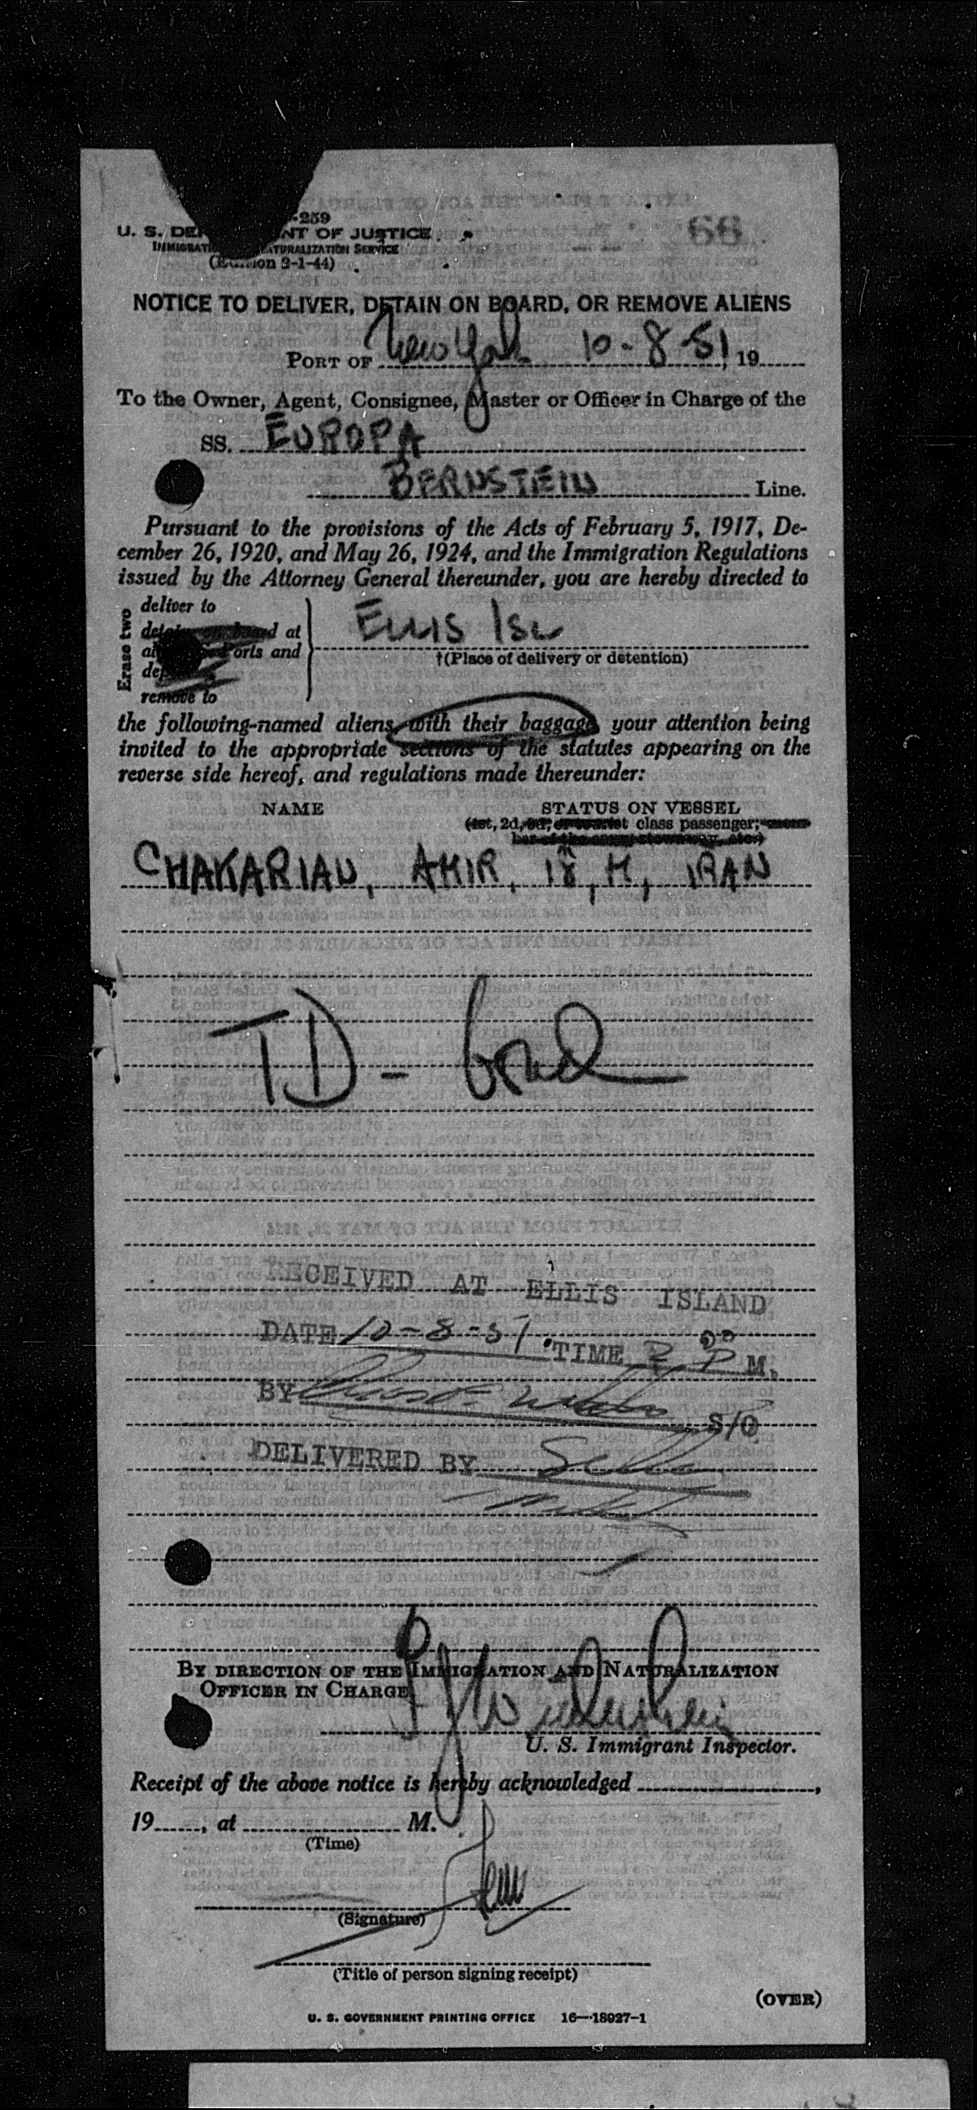 -259
66
U. S. DE NT OF JUSTICE
IMMIGRATI ATURALIZATION SERVICE
(Edition 3-1-44)
NOTICE TO DELIVER, DETAIN ON BOARD, OR REMOVE ALIENS
PORT OF New York 10-8-51, 19
To the Owner, Agent, Consignee, Master or Officer in Charge of the
SS. EUROPA
BERNSTEIN Line.
Pursuant to the provisions of the Acts of February 5, 1917, De-
cember 26, 1920, and May 26, 1924, and the Immigration Regulations
issued by the Attorney General thereunder, you are hereby directed to
Erase two
deliver to
detain on board at
orts and
remove to
ELLIS ISL
†(Place of delivery or detention)
the following-named aliens, with their baggage, your attention being
invited to the appropriate sections of the statutes appearing on the
reverse side hereof, and regulations made thereunder:
NAME STATUS ON VESSEL
(1st, 2d, 3d, or tourist class passenger; mem-
ber of the crew, stowaway, etc.)
CHAKARIAN, AMIR, 18, M, IRAN
TD - bond
RECEIVED AT ELLIS ISLAND
DATE 10-8-51. TIME 2 00 P M.
BY S/O
DELIVERED BY
BY DIRECTION OF THE IMMIGRATION AND NATURALIZATION
OFFICER IN CHARGE
U. S. Immigrant Inspector.
Receipt of the above notice is hereby acknowledged ,
19 , at M.
(Time)
(Signature)
(Title of person signing receipt)
(OVER)
U. S. GOVERNMENT PRINTING OFFICE 16—18927-1